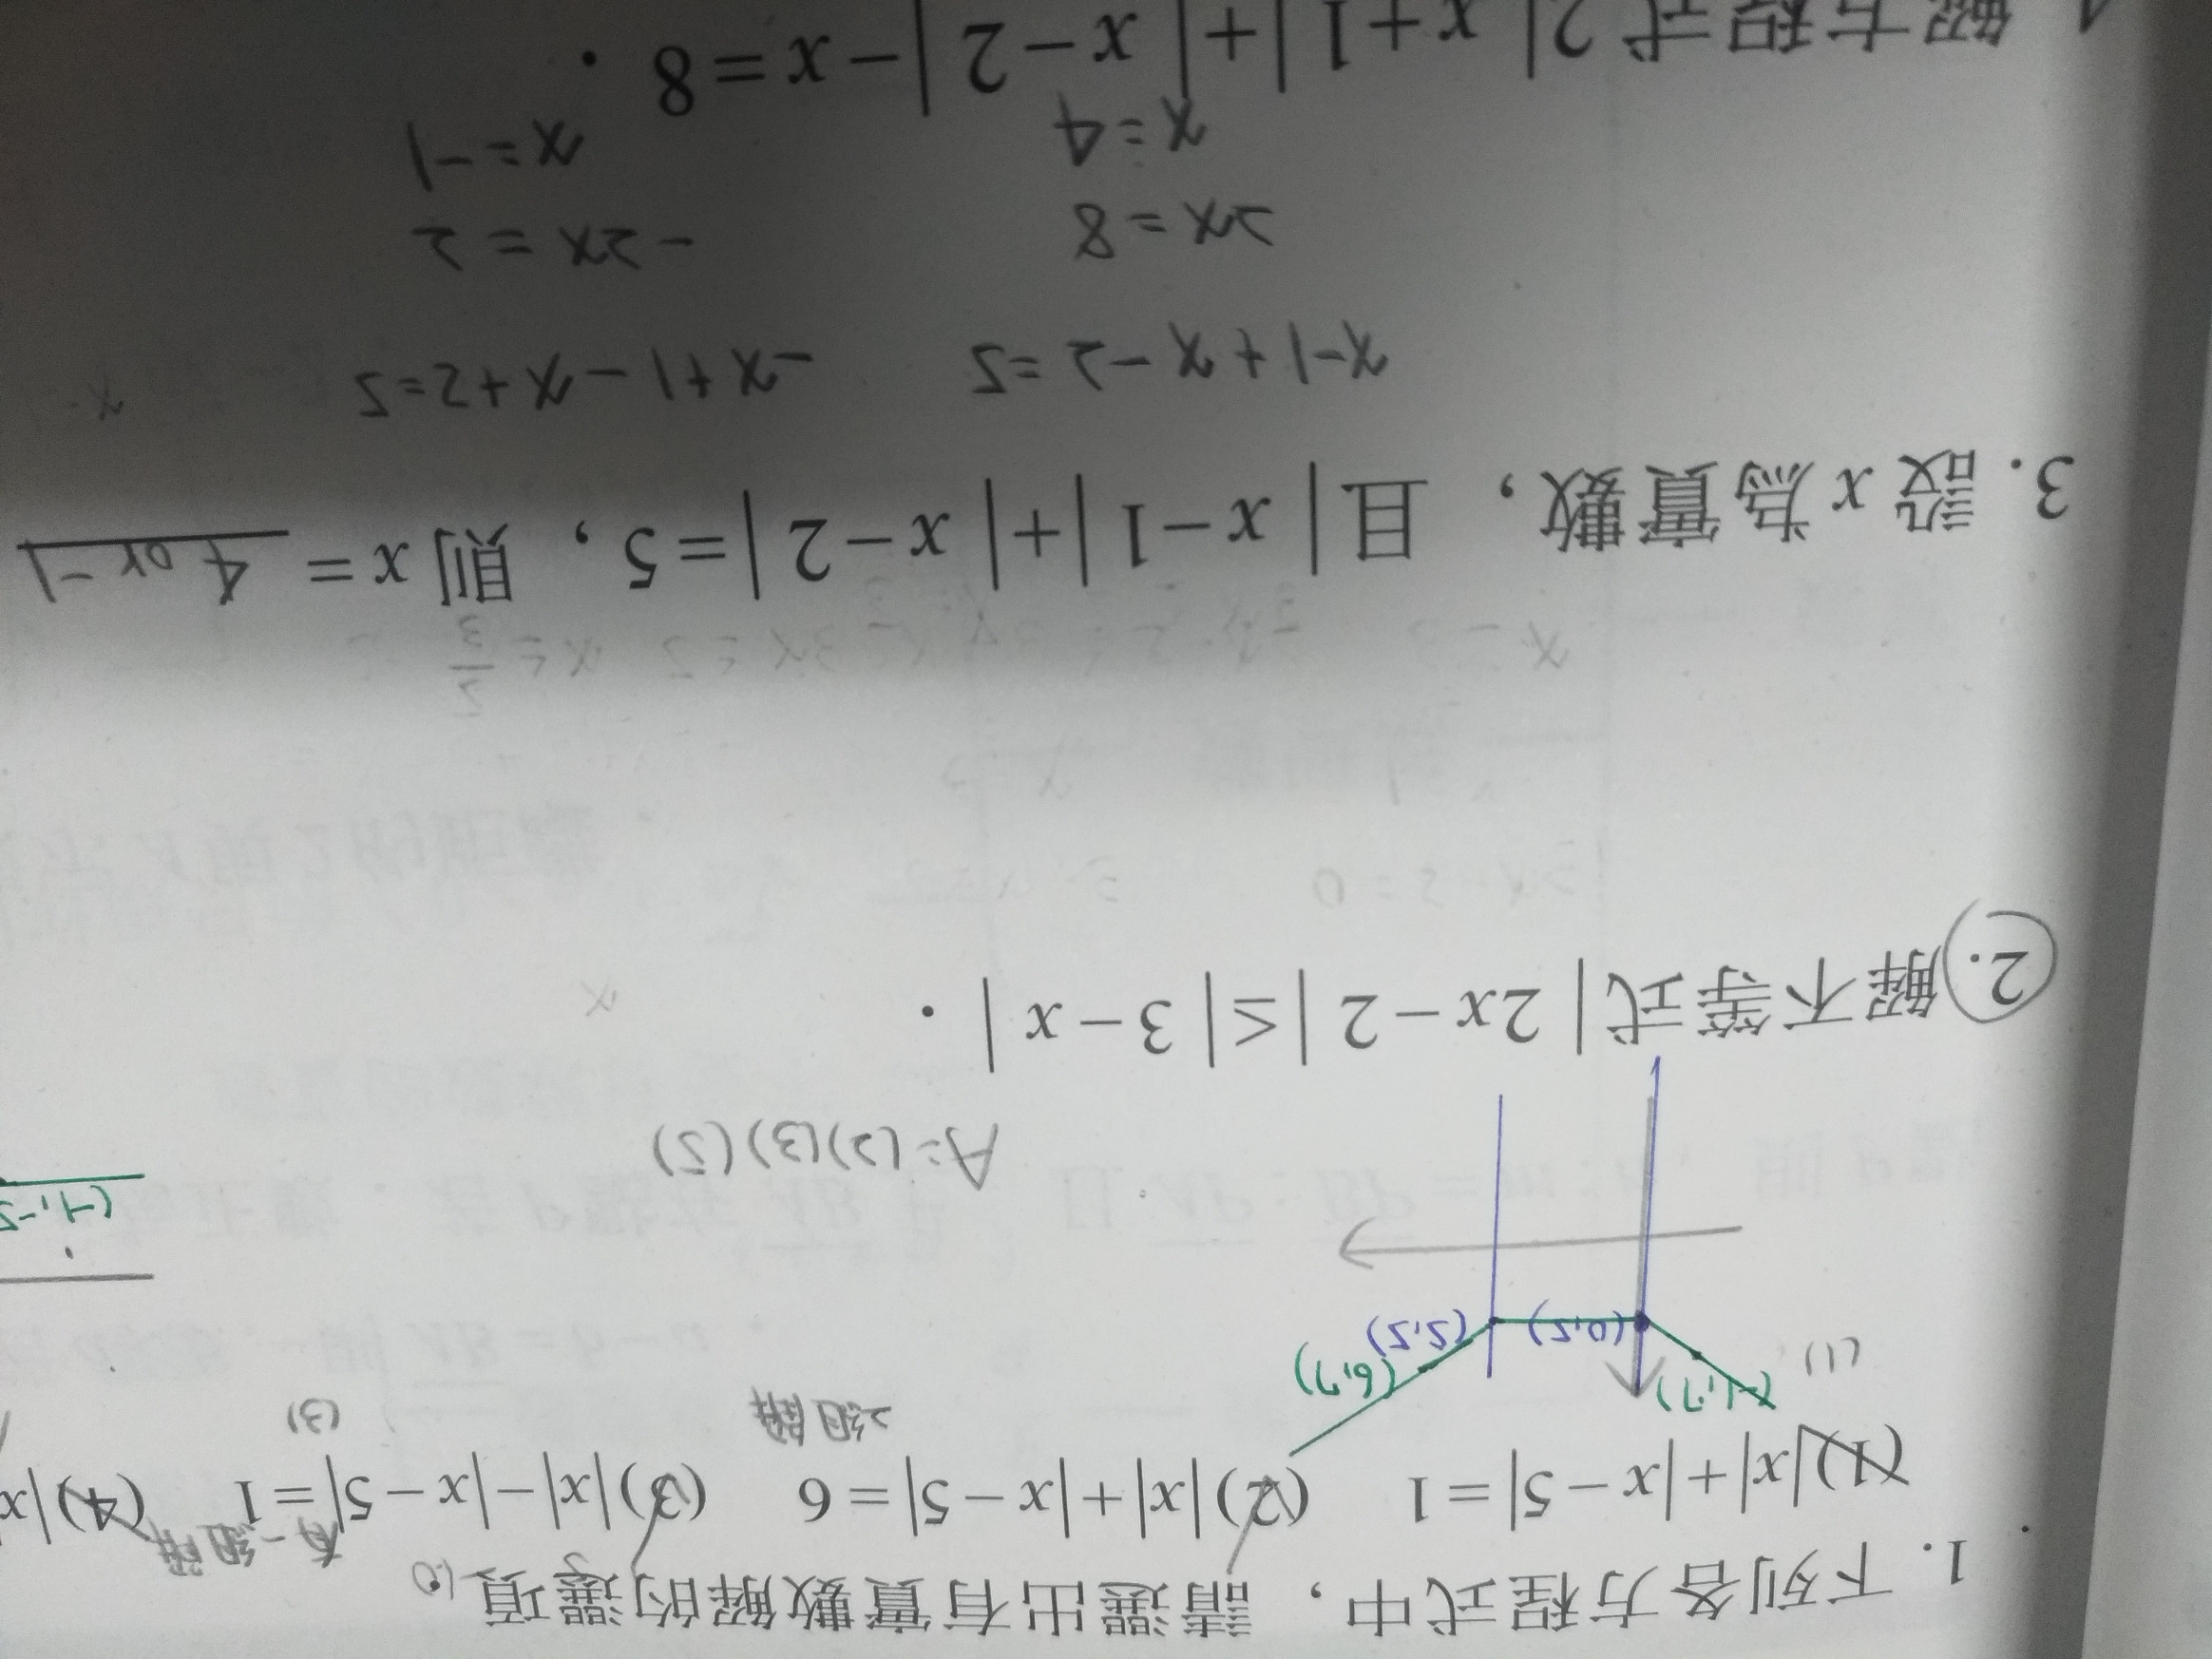 1. 下列各方程式中，請選出有實數解的選項
(1)|x|+|x-5|=1 (2)|x|+|x-5|=6 (3)|x|-|x-5|=1 (4)|x
有一組解
2組解
(3)
(1)
(-1,7)
(0,5)
(5,5)
(6,7)
(-1,-5
A=(2)(3)(5)
2. 解不等式|2x-2|≤|3-x|.
3. 設x為實數，且|x-1|+|x-2|=5，則x= 4 or -1
x-1+x-2=5 -x+1-x+2=5
2x=8 -2x=2
x=4 x=-1
解方程式2|x+1|+|x-2|-x=8.